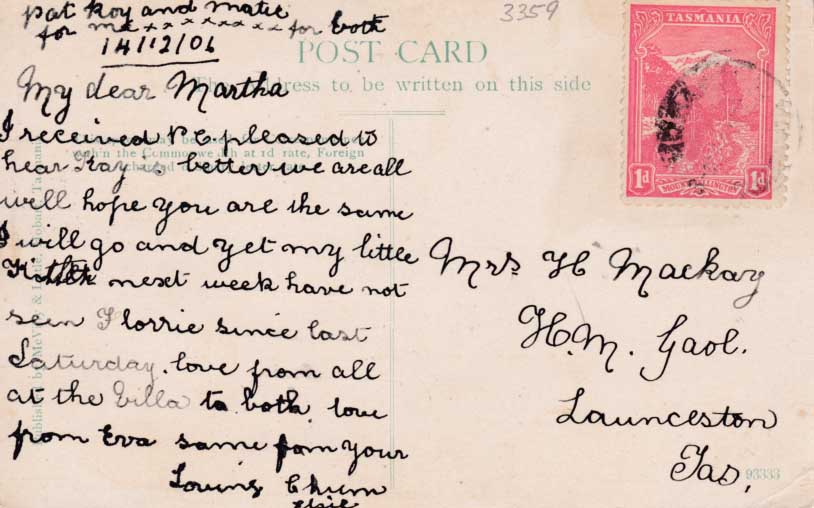 pat Roy and matie
for me x x x x x x x x for both
14/12/06
3359
TASMANIA
1d
1d
MOUNT WELLINGTON
POST CARD
The address to be written on this side
My dear Martha
I received P.C. pleased to
hear Kay is better we are all
well hope you are the same
I will go and get my little
next week have not
seen Florrie since last
Saturday. love from all
at the Villa to both. love
from Eva same fom your
Loving Chum
Elsie
within the Commonwealth at 1d rate, Foreign
Mrs H Mackay
H.M. Gaol.
Launceston
Tas,
93333